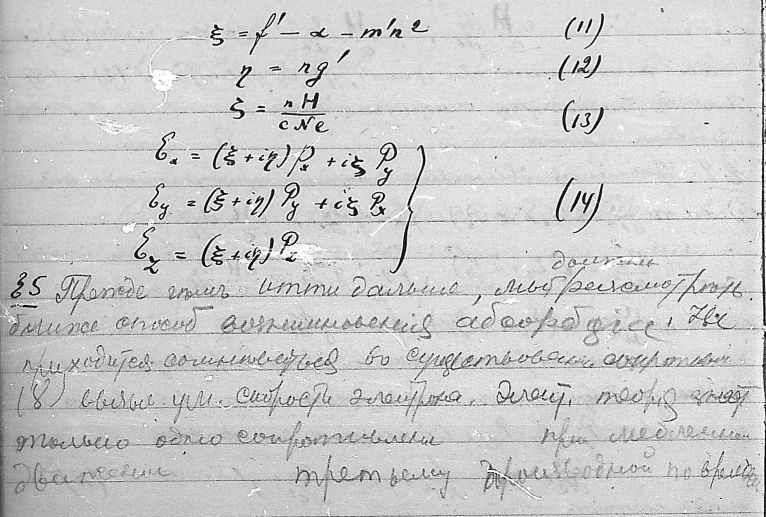 ξ = f' − α − m'n² (11)
η = ng' (12)
ζ = nH / cNe (13)
Ɛx = (ξ + iη) Px + iζ Py
Ɛy = (ξ + iη) Py + iζ Px (14)
Ɛz = (ξ + iη) Pz
должны
§5 Прежде чем итти дальше, мы рассмотреть
ближе способ возникновения абсорбции.
приходится сомневаться во существовании сопротивл
(8) скорости электрона. Элект. теория знает
только одно сопротивление при медленном
движении третьему производной по времени